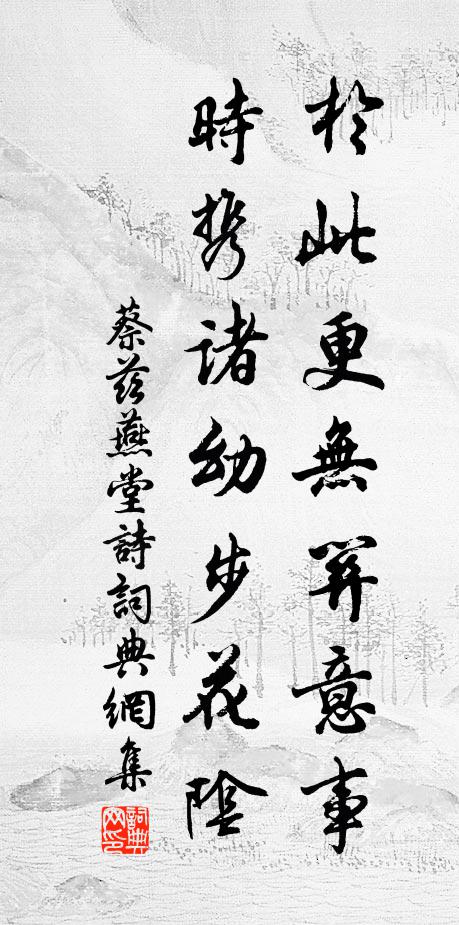 於此更無關意事
時携諸幼步花陰
蔡茲燕堂詩詞典網集
詞典
网印